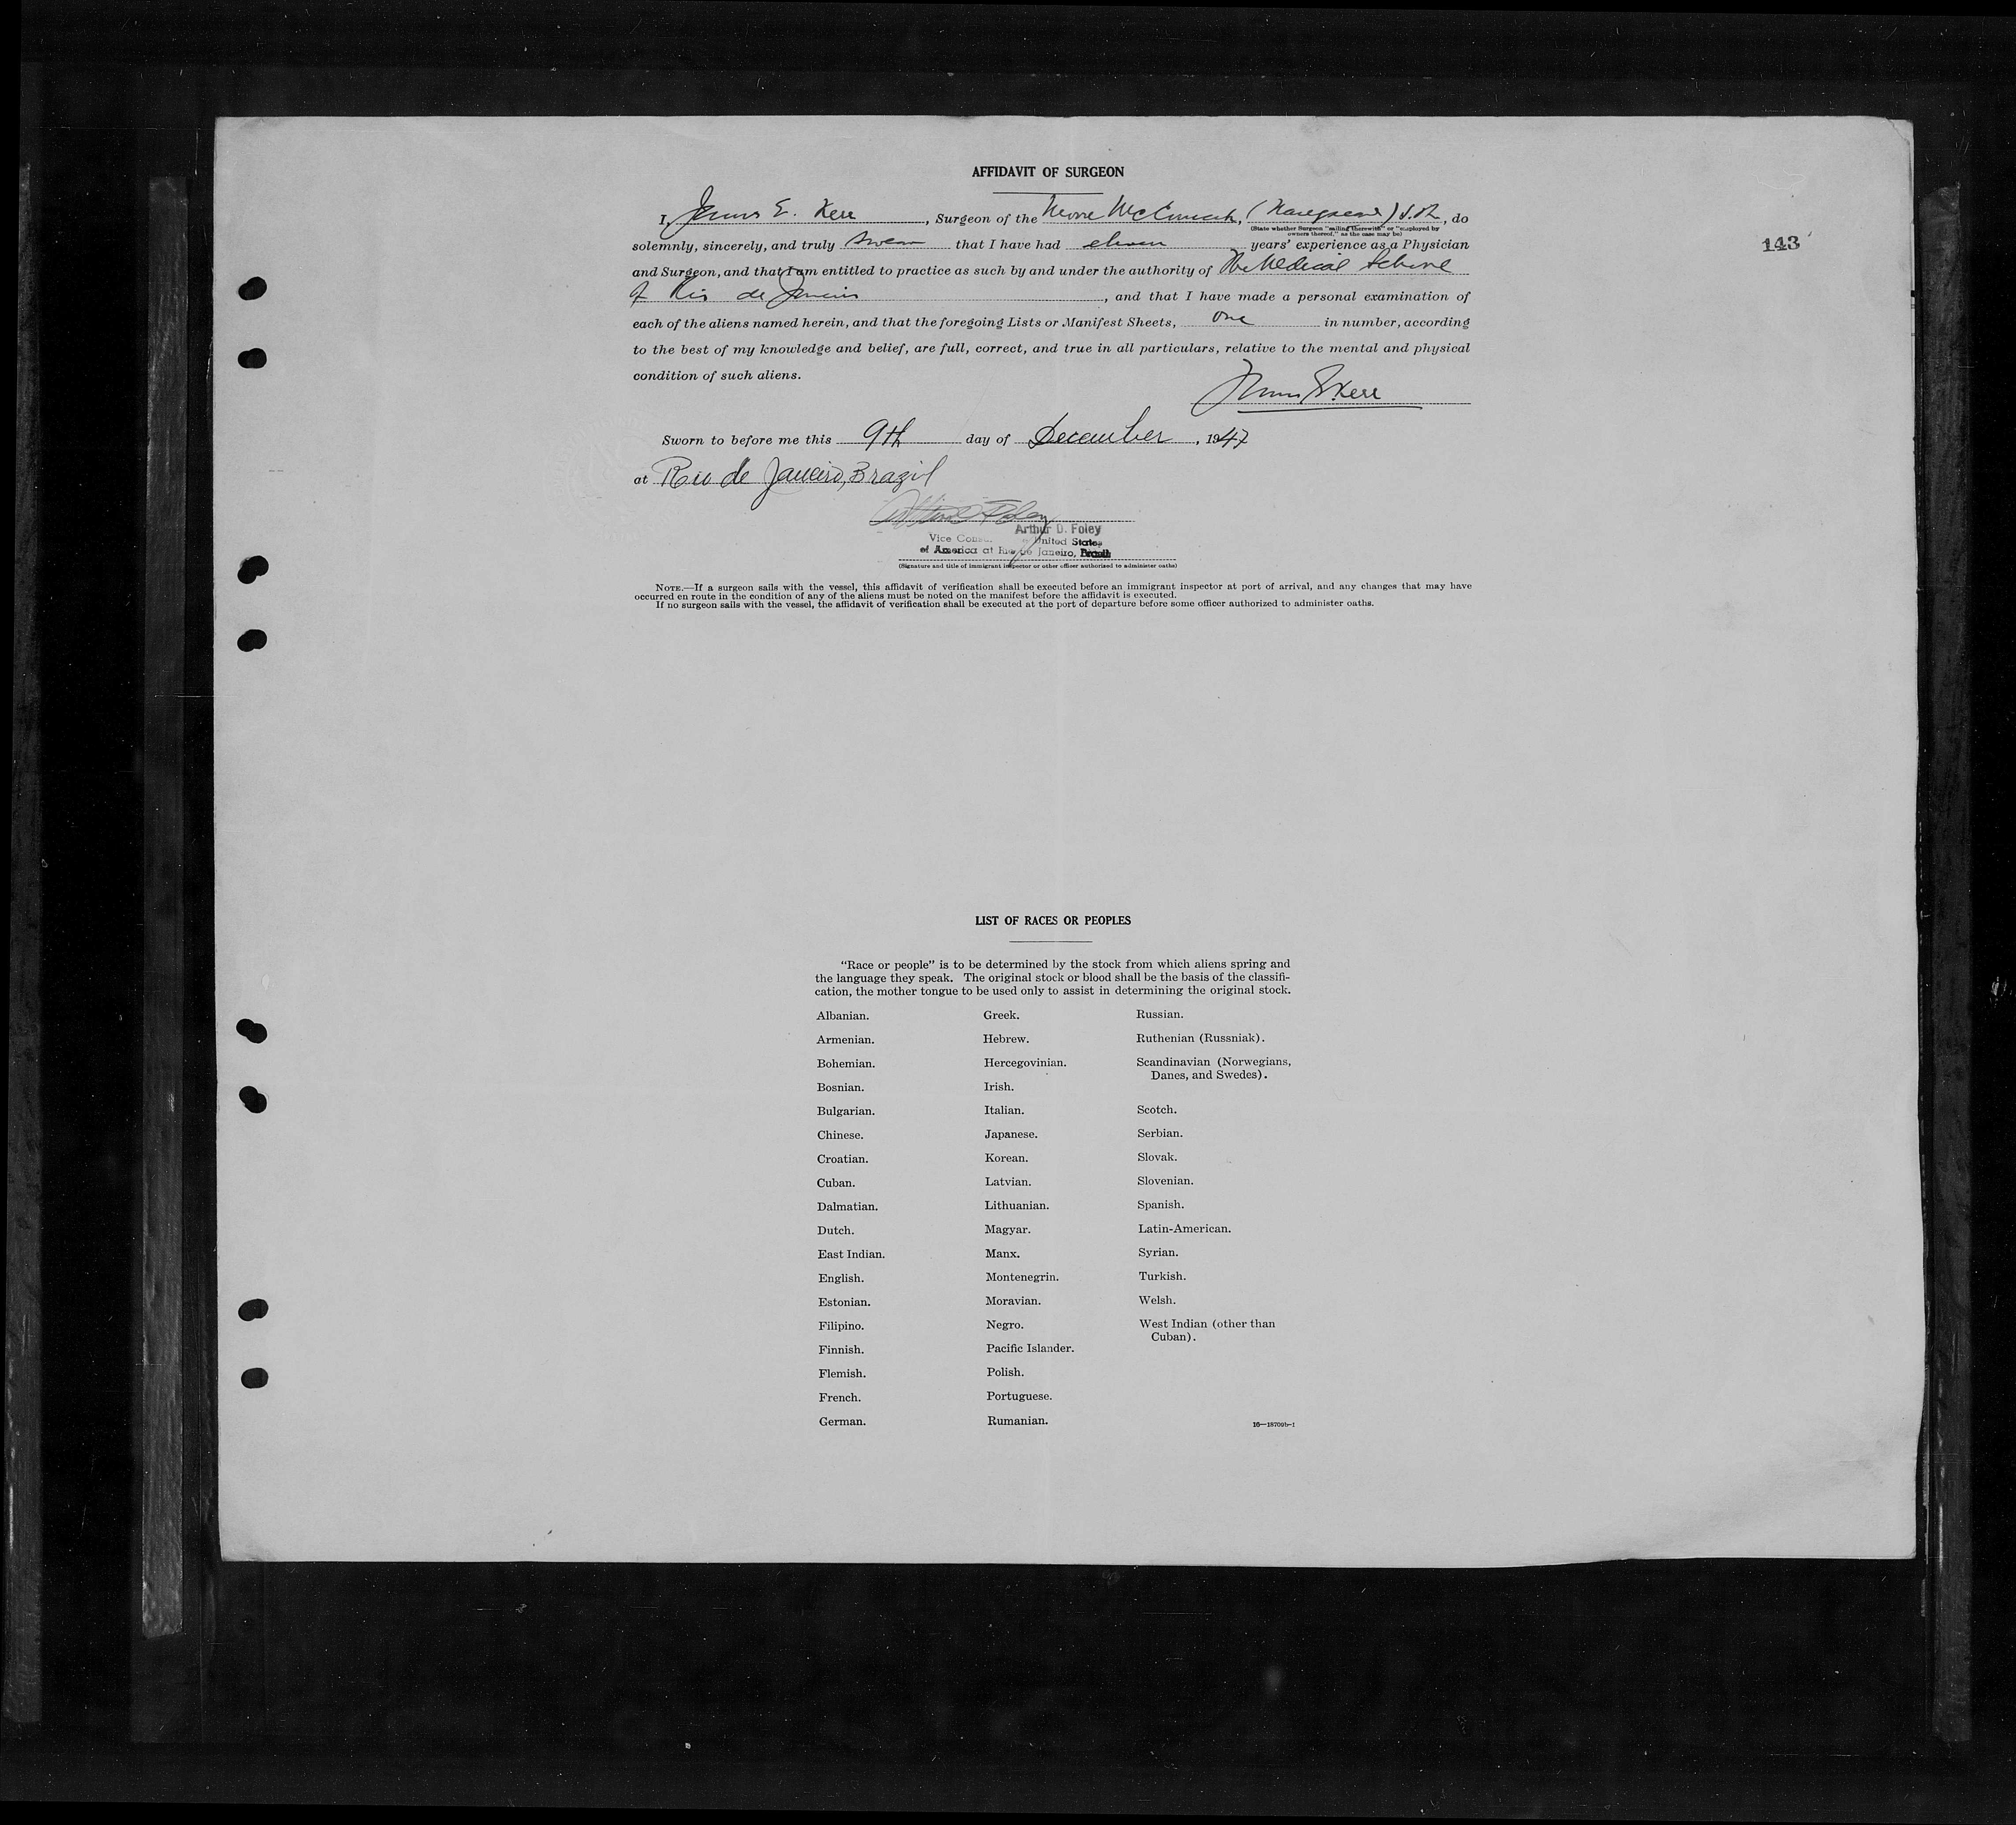 AFFIDAVIT OF SURGEON
I, James E. Kerr, Surgeon of the Moore McCormack, do
(State whether Surgeon "sailing therewith" or "employed by
owners thereof," as the case may be)
solemnly, sincerely, and truly swear that I have had eleven years' experience as a Physician
143
and Surgeon, and that I am entitled to practice as such by and under the authority of The Medical School
of Rio de Janeiro, and that I have made a personal examination of
each of the aliens named herein, and that the foregoing Lists or Manifest Sheets, one in number, according
to the best of my knowledge and belief, are full, correct, and true in all particulars, relative to the mental and physical
condition of such aliens.
James E. Kerr
Sworn to before me this 9th day of December, 1947
at Rio de Janeiro, Brazil
Arthur D. Foley
Arthur D. Foley
Vice Consul United States
of America at Rio de Janeiro, Brazil
(Signature and title of immigrant inspector or other officer authorized to administer oaths)
NOTE.—If a surgeon sails with the vessel, this affidavit of verification shall be executed before an immigrant inspector at port of arrival, and any changes that may have
occurred en route in the condition of any of the aliens must be noted on the manifest before the affidavit is executed.
If no surgeon sails with the vessel, the affidavit of verification shall be executed at the port of departure before some officer authorized to administer oaths.
LIST OF RACES OR PEOPLES
"Race or people" is to be determined by the stock from which aliens spring and
the language they speak. The original stock or blood shall be the basis of the classifi-
cation, the mother tongue to be used only to assist in determining the original stock.
Albanian.
Armenian.
Bohemian.
Bosnian.
Bulgarian.
Chinese.
Croatian.
Cuban.
Dalmatian.
Dutch.
East Indian.
English.
Estonian.
Filipino.
Finnish.
Flemish.
French.
German.
Greek.
Hebrew.
Hercegovinian.
Irish.
Italian.
Japanese.
Korean.
Latvian.
Lithuanian.
Magyar.
Manx.
Montenegrin.
Moravian.
Negro.
Pacific Islander.
Polish.
Portuguese.
Rumanian.
Russian.
Ruthenian (Russniak).
Scandinavian (Norwegians,
Danes, and Swedes).
Scotch.
Serbian.
Slovak.
Slovenian.
Spanish.
Latin-American.
Syrian.
Turkish.
Welsh.
West Indian (other than
Cuban).
16—18709b-1